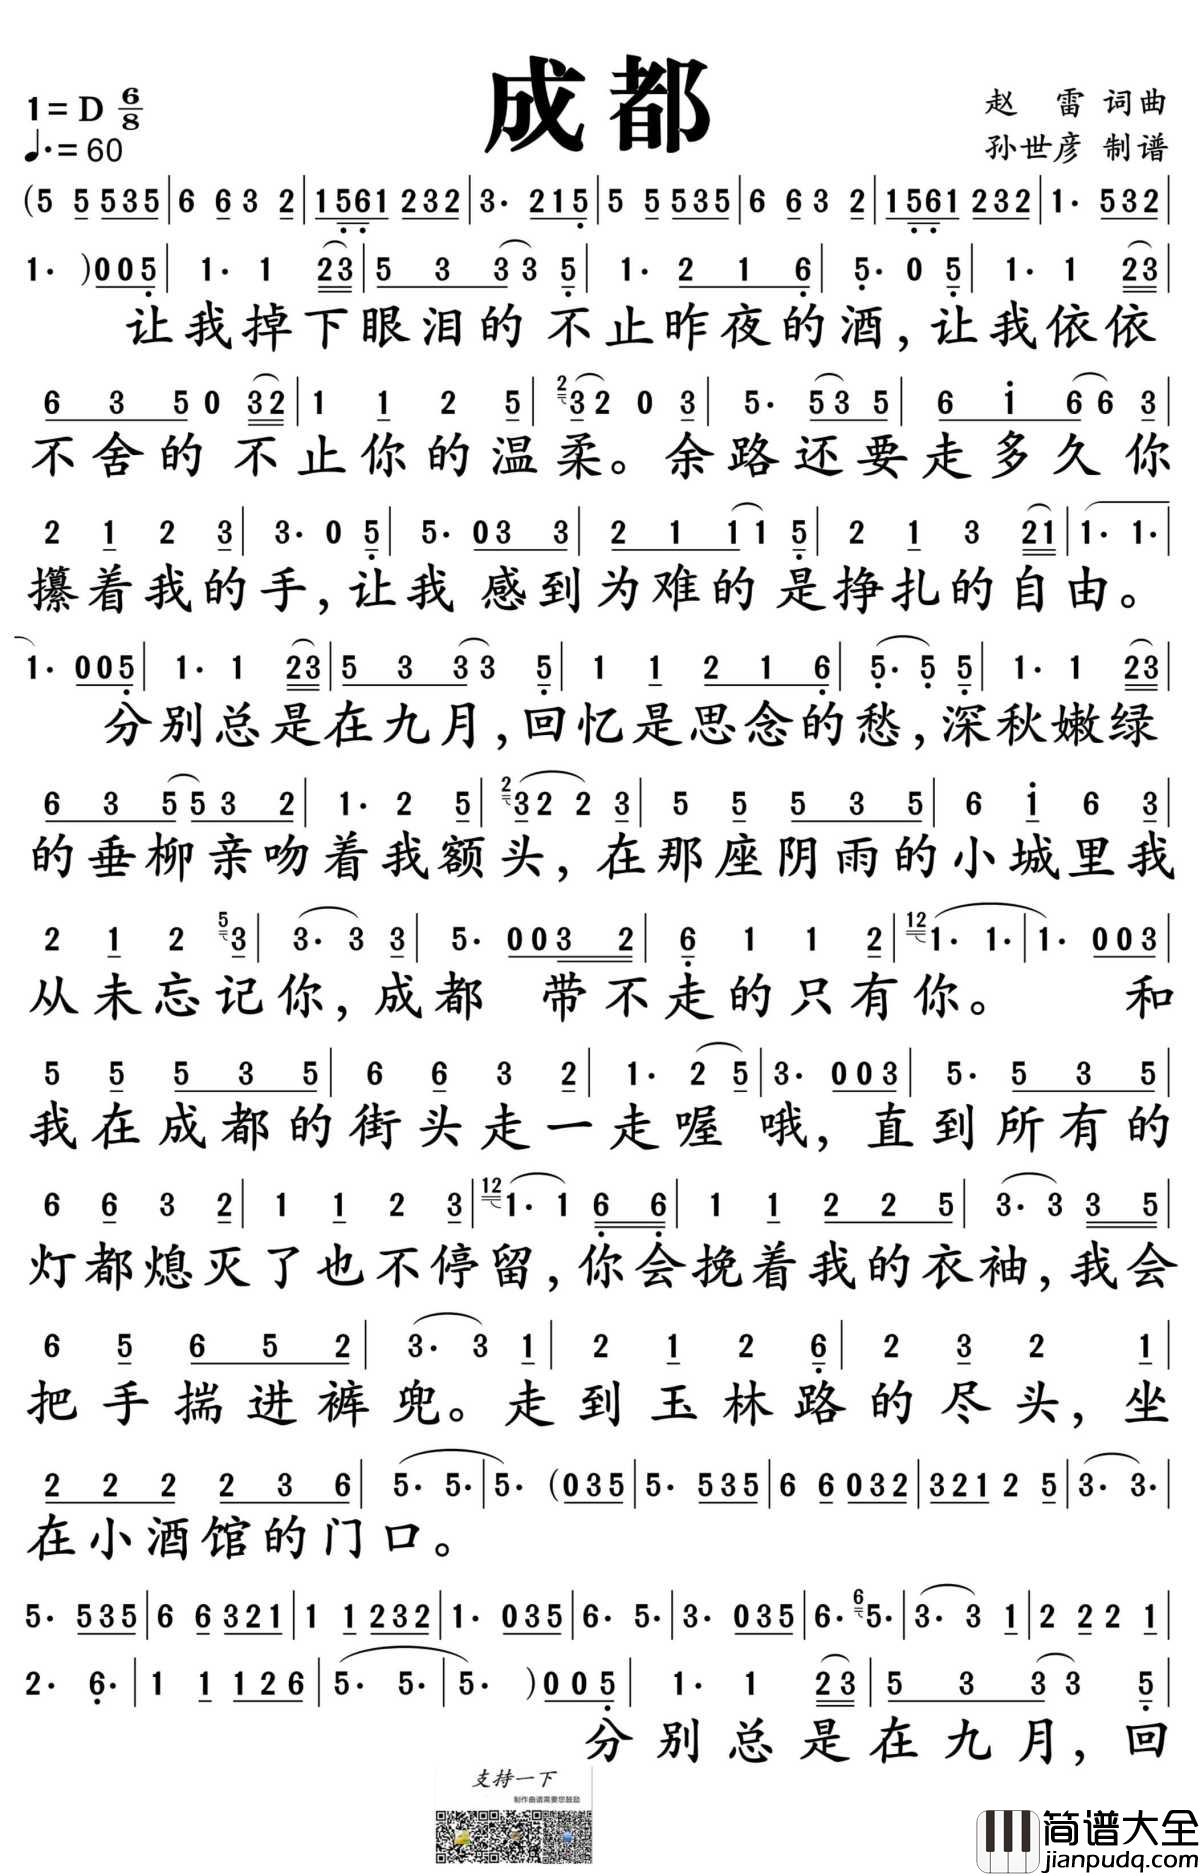 成都
1=D 6/8
♩.=60
赵 雷 词曲
孙世彦 制谱
(5 5 535|6 63 2|1561 232|3· 215|5 5 535|6 63 2|1561 232|1· 532|
1· )005|1· 1 23|5 3 33 5|1· 2 1 6|5· 0 5|1· 1 23|
让我掉下眼泪的 不止昨夜的酒,让我依依
6 3 50 32|1 1 2 5|2 32 0 3|5· 53 5|6 i 66 3|
不舍的 不止你的温柔。余路还要走多久你
2 1 2 3|3·0 5|5· 03 3|2 1 11 5|2 1 3 21|1· 1·|
攥着我的手,让我 感到为难的 是挣扎的自由。
1· 005|1· 1 23|5 3 33 5|1 1 2 1 6|5· 5 5|1· 1 23|
分别总是在九月,回忆是思念的愁,深秋嫩绿
6 3 553 2|1· 2 5|2 32 2 3|5 5 5 3 5|6 i 6 3|
的垂柳亲吻着我额头,在那座阴雨的小城里我
2 1 2 5 3|3· 3 3|5· 003 2|6 1 1 2|12 1· 1·|1· 003|
从未忘记你,成都 带不走的只有你。 和
5 5 5 3 5|6 6 3 2|1· 2 5|3· 003|5· 5 3 5|
我在成都的街头走一走喔 哦,直到所有的
6 6 3 2|1 1 2 3|12 1· 1 6 6|1 1 2 2 5|3· 3 3 5|
灯都熄灭了也不停留,你会挽着我的衣袖,我会
6 5 6 5 2|3· 3 1|2 1 2 6|2 3 2 1|
把手揣进裤兜。走到玉林路的尽头,坐
2 2 2 2 3 6|5· 5·|5· (035|5· 535|6 6 032|321 2 5|3· 3·|
在小酒馆的门口。
5· 535|6 6 321|1 1 232|1· 035|6· 5·|3· 035|6· 6 5·|3· 3 1|2 2 2 1|
2· 6·|1 1 126|5· 5·|5· )005|1· 1 23|5 3 33 5|
分别总是在九月,回
支持一下
制作曲谱需要您鼓励
简谱大全
jianpudq.com